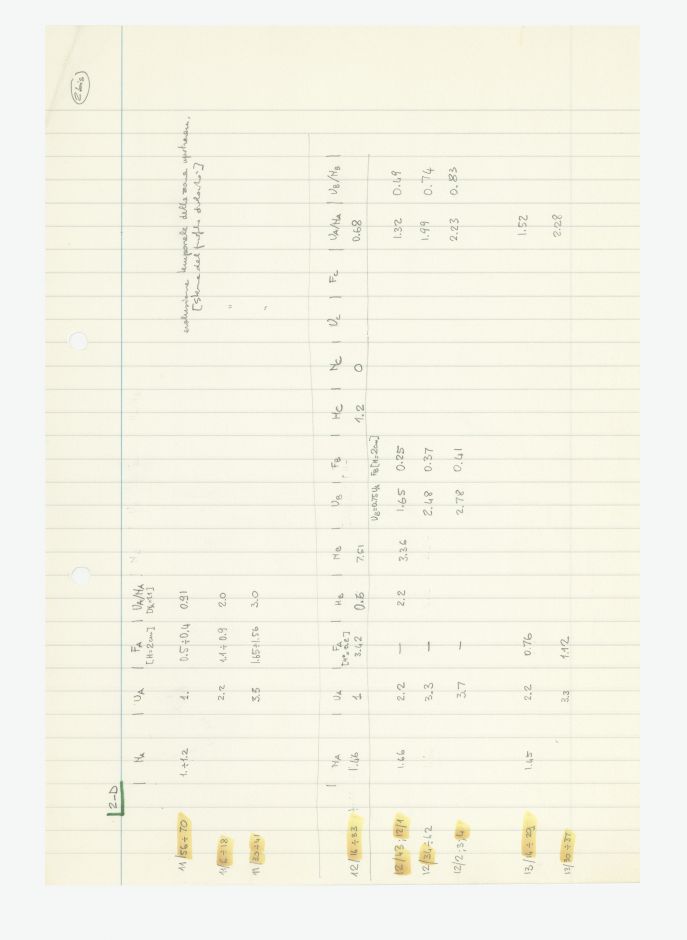 2 bis
2-D
| N_A | U_A | F_A [H=2cm] | U_A/N_A |
11/56÷70 1.÷1.2 1. 0.5÷0.4 0.91 evoluzione temporale della
11/6÷18 2.2 1.1÷0.9 2.0 " "
11/30÷41 3.3 1.65÷1.56 3.0
| N_A | U_A | F_A | H_B | N_B | U_B | F_B | H_C | N_C | U_C | F_C | U_A/N_A | U_B/N_B |
12/16÷33 1.46 1 3.42 0.6 7.51 1.2 0 0.68
U_B=0.75 U_A F_B [H=2cm]
12/43; 12/1 1.66 2.2 — 2.2 3.36 1.65 0.25 1.32 0.49
12/34÷42 3.3 — 2.48 0.37 1.99 0.74
12/2;3;4 3.7 — 2.78 0.41 2.23 0.83
13/14÷29 1.45 2.2 0.76 1.52
13/30÷37 3.3 1.12 2.28